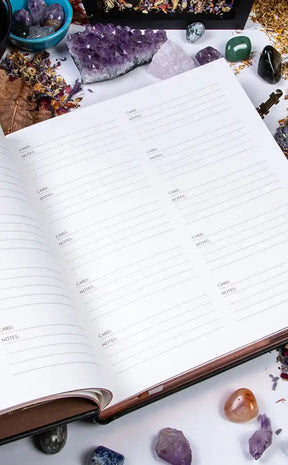 CARD:
NOTES:
CARD:
NOTES:
CARD:
NOTES:
CARD:
NOTES:
CARD:
NOTES:
CARD:
NOTES:
CARD:
NOTES:
CARD:
NOTES:
CARD:
NOTES:
CARD:
NOTES:
CARD:
NOTES: